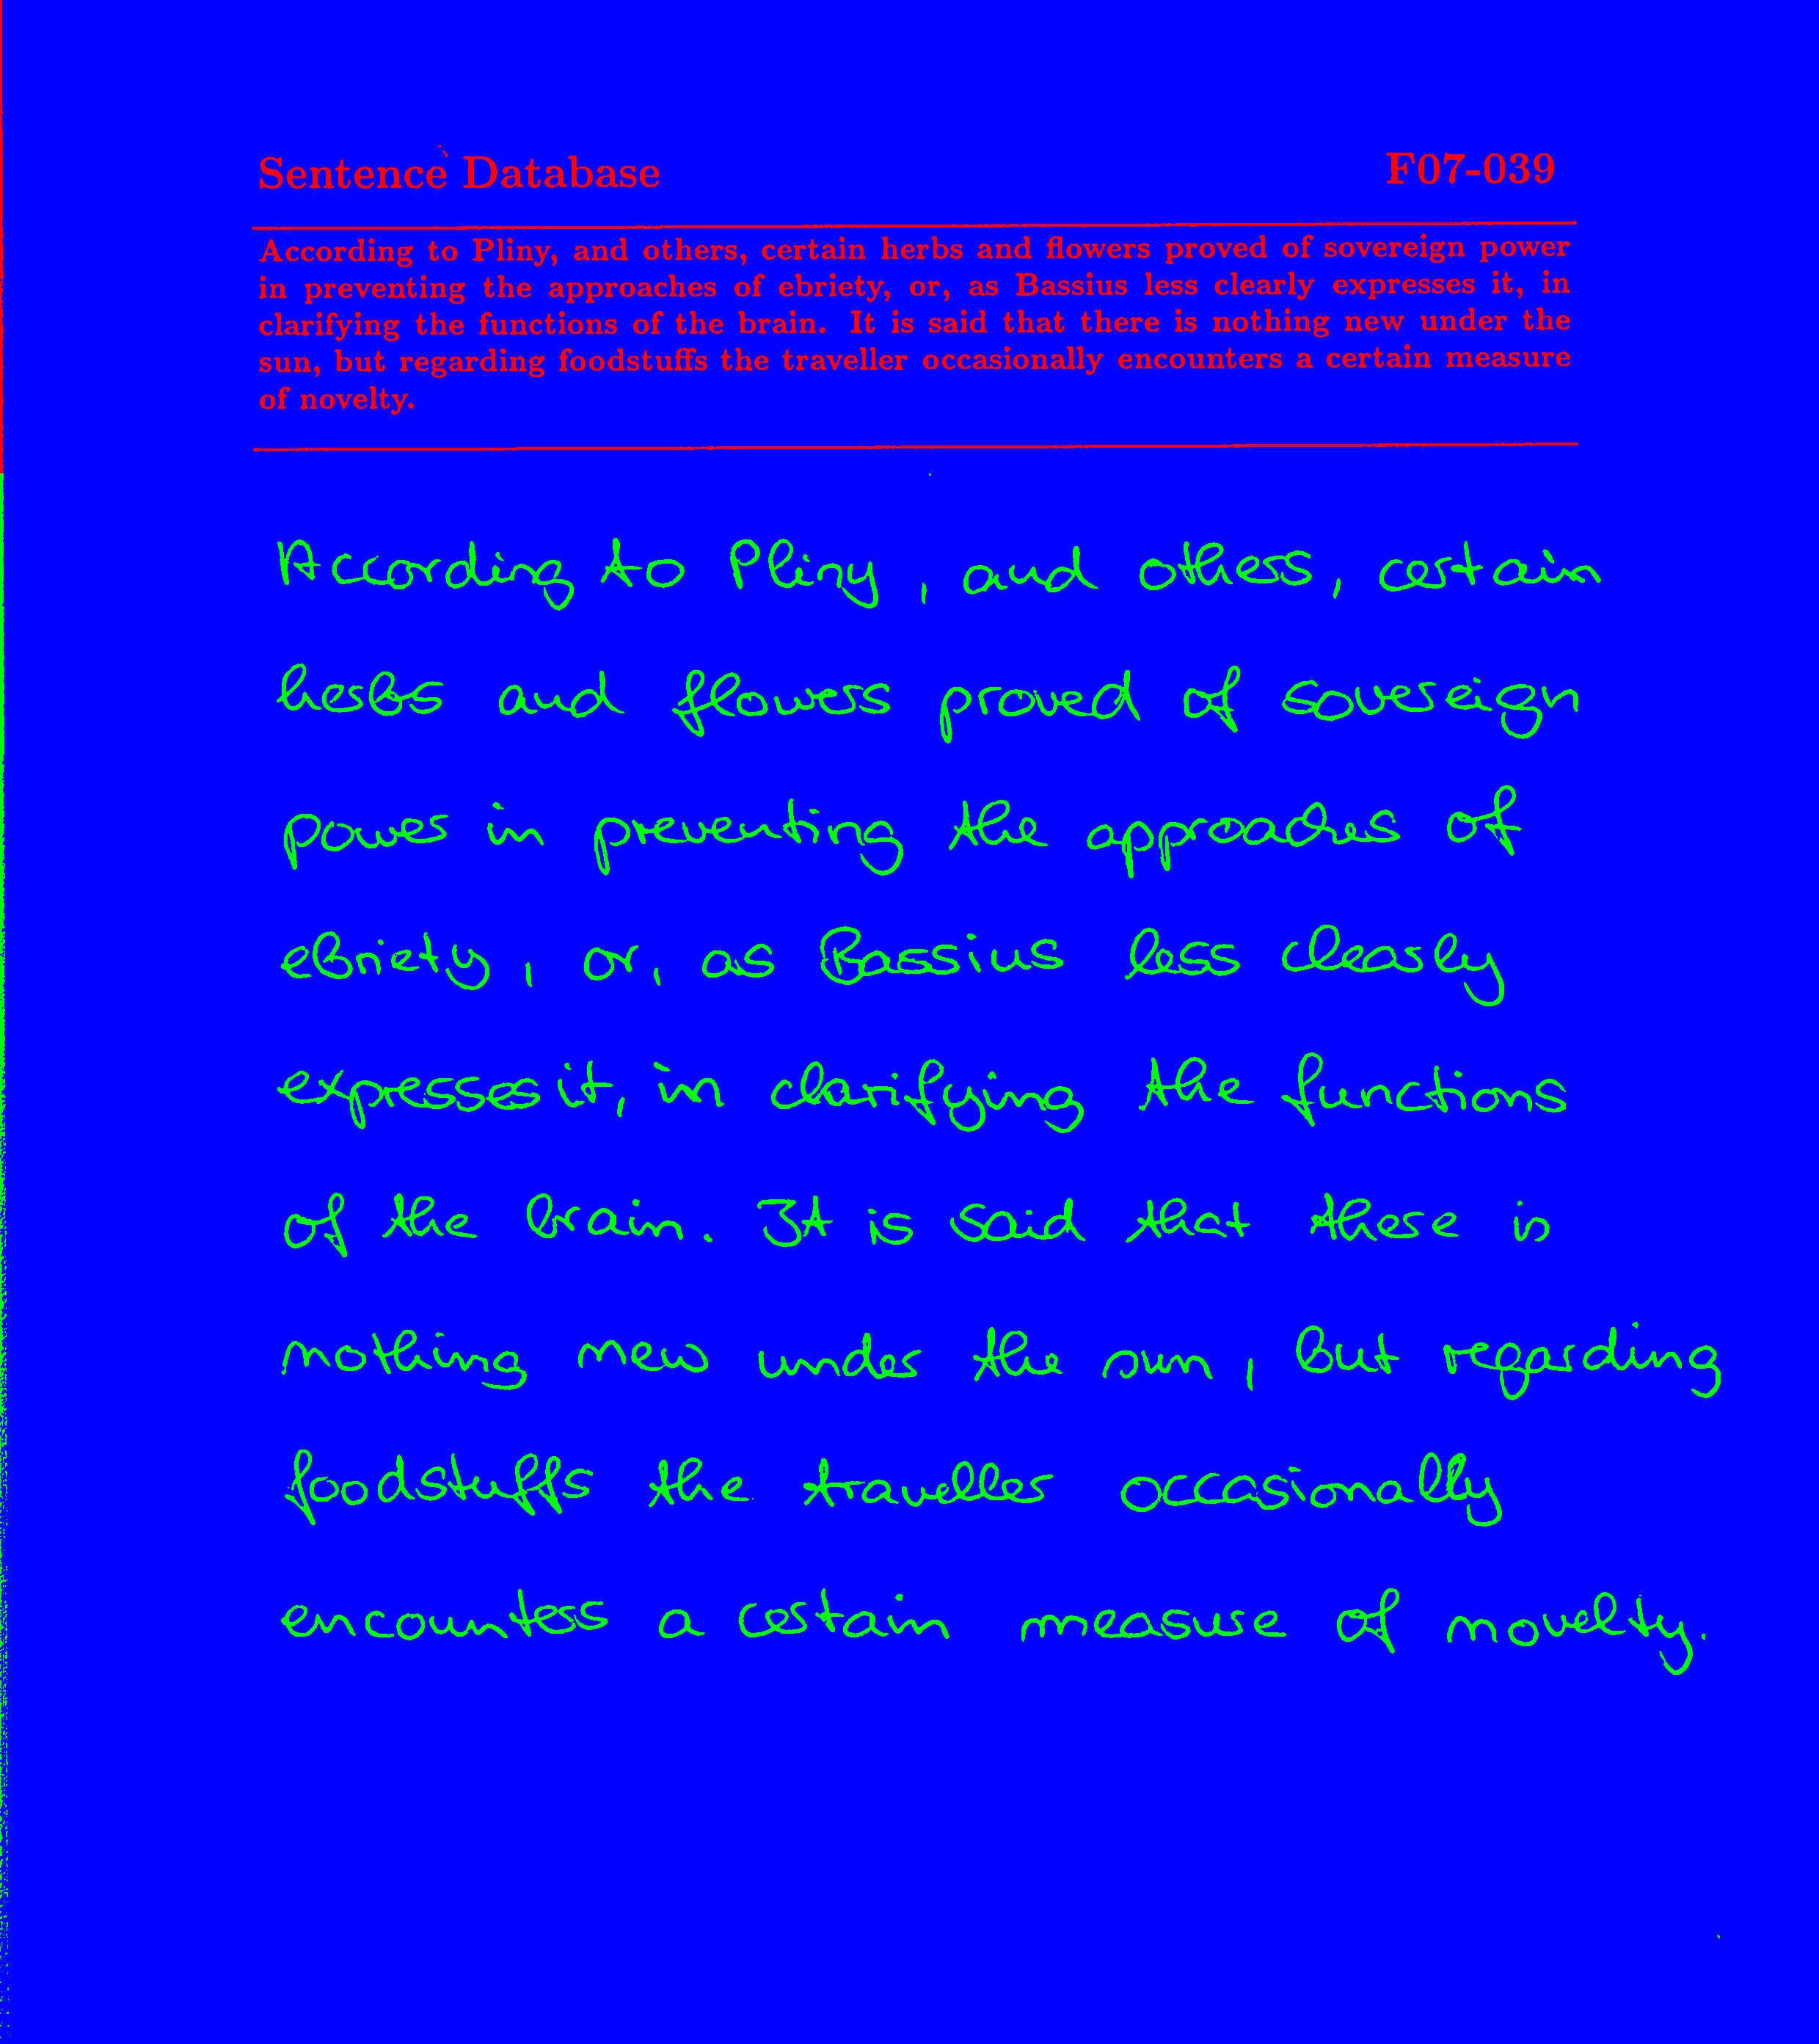 Sentence Database F07-039
According to Pliny, and others, certain herbs and flowers proved of sovereign power
in preventing the approaches of ebriety, or, as Bassius less clearly expresses it, in
clarifying the functions of the brain. It is said that there is nothing new under the
sun, but regarding foodstuffs the traveller occasionally encounters a certain measure
of novelty.
According to Pliny, and others, certain
herbs and flowers proved of sovereign
power in preventing the approaches of
ebriety, or, as Bassius less clearly
expresses it, in clarifying the functions
of the brain. It is said that there is
nothing new under the sun, but regarding
foodstuffs the traveller occasionally
encounters a certain measure of novelty.